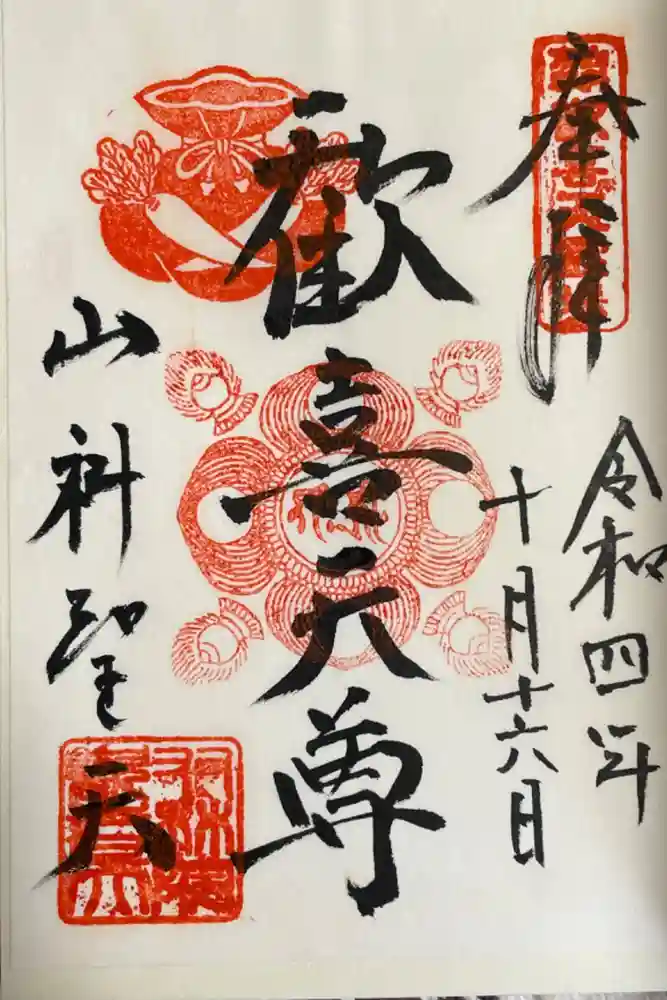 奉拝
令和四年
十月十六日
歓喜天尊
山科聖天